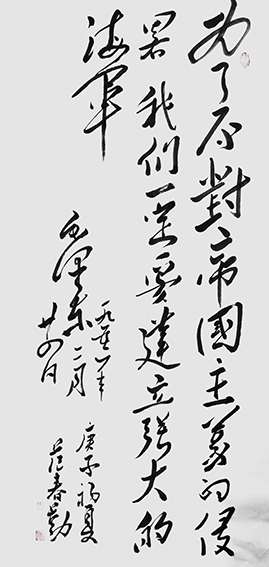 为了反對帝國主义的侵
畧我们一定要建立强大的
海军
毛泽东
一九五三年
二月
廿四日
庚子初夏
范春勤